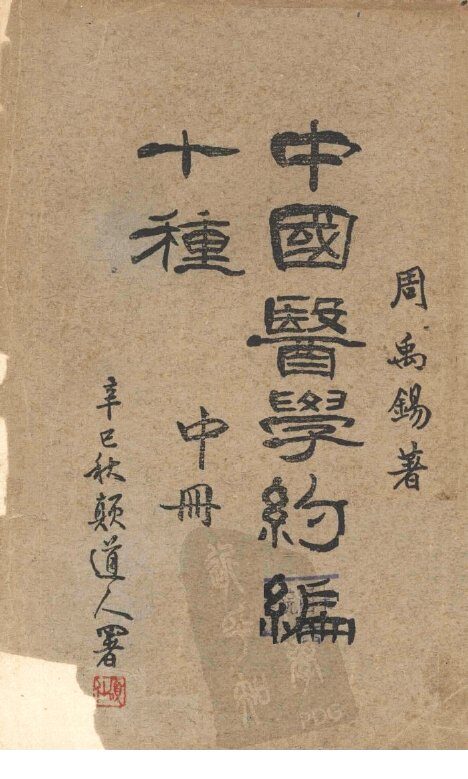 周禹錫著
中國醫學約編
十種
中冊
辛巳秋顛道人署